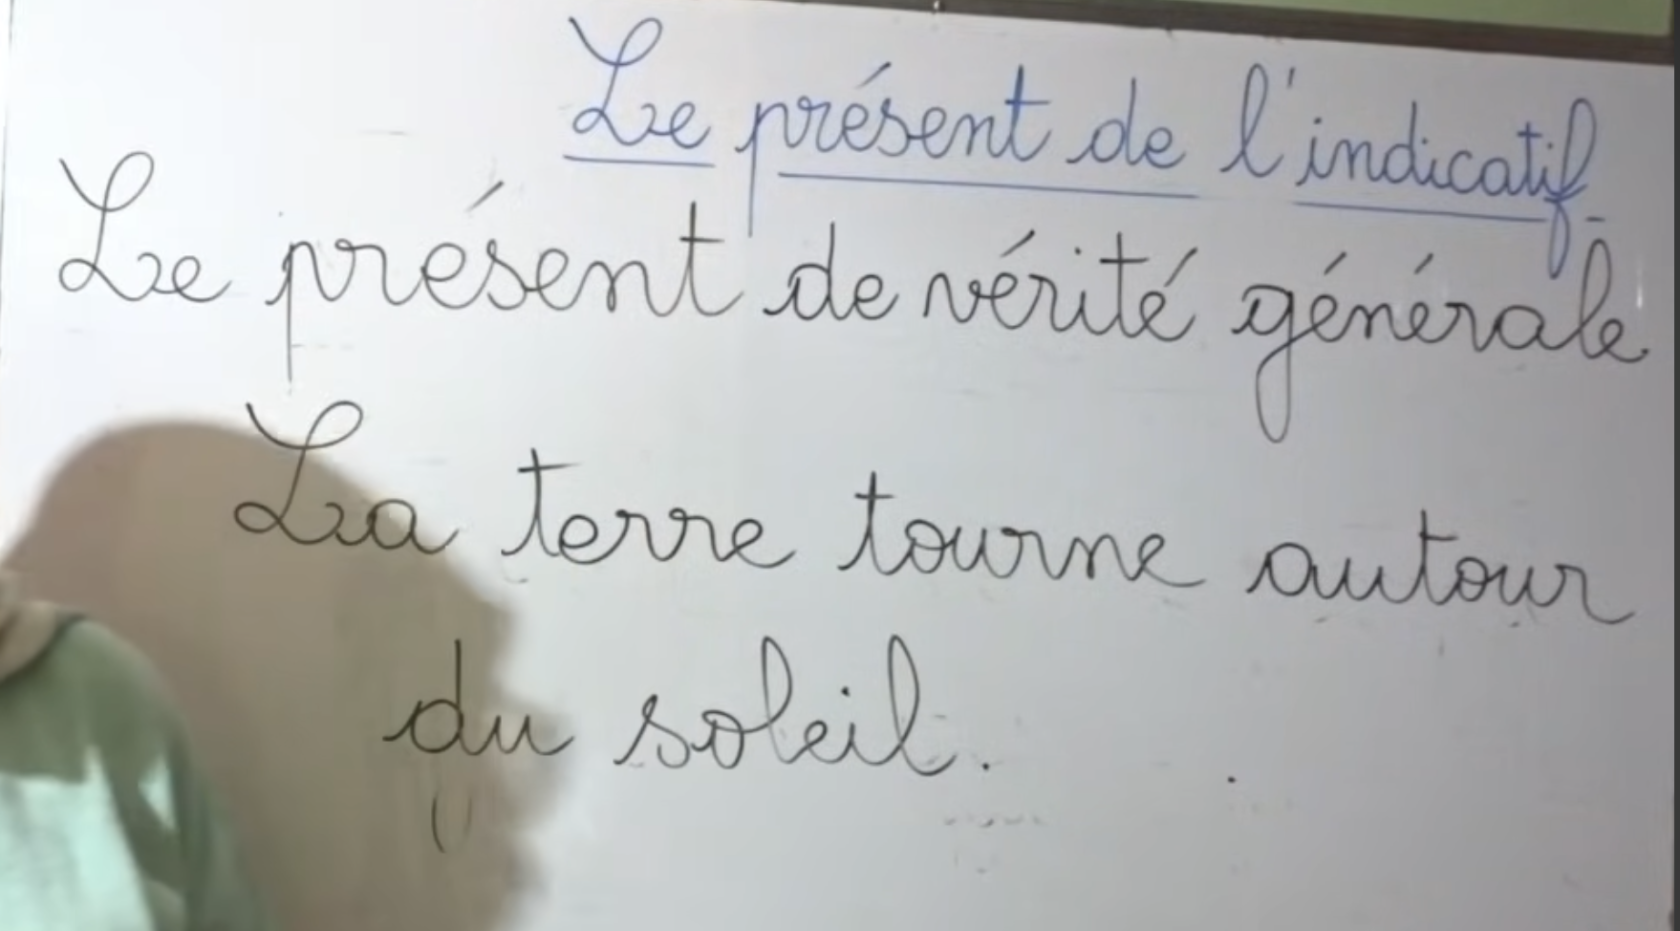 Le présent de l'indicatif.
Le présent de vérité générale
La terre tourne autour
du soleil.